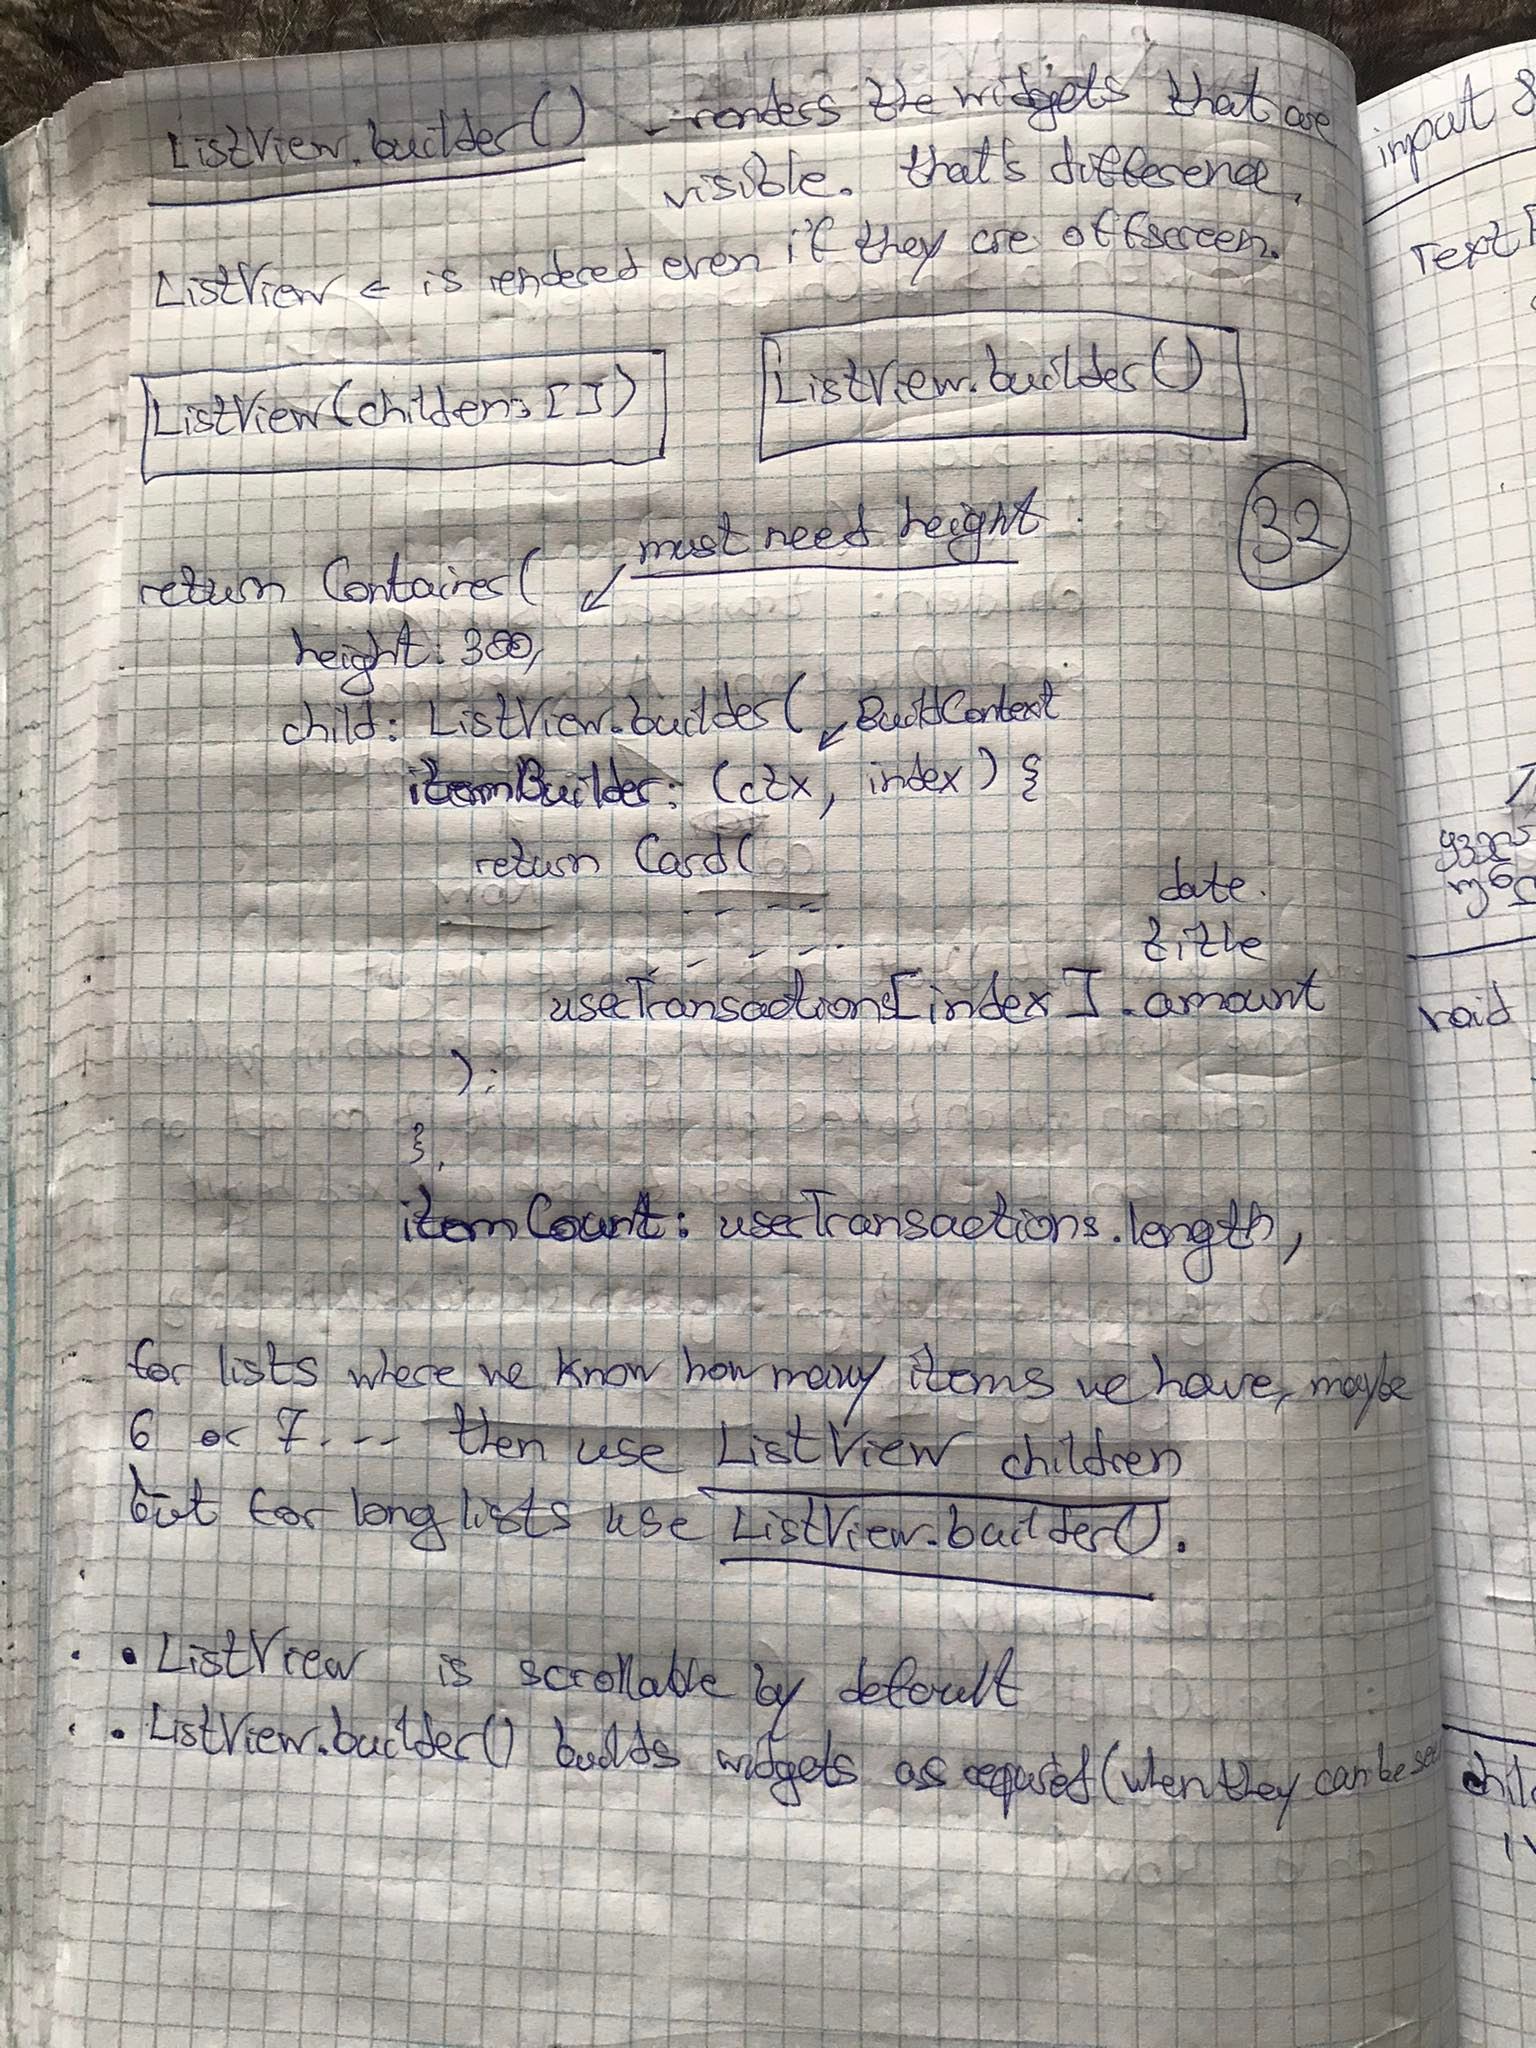 ListView.builder() - renders the widgets that are
visible. that's difference,
ListView ← is rendered even if they are offscreen.
ListView(children: [])
ListView.builder()
32
must need height
return Container(
height: 300,
child: ListView.builder( ↙ BuildContext
itemBuilder: (ctx, index) {
return Card(
- - - -
date.
- - - -
title
userTransactions[index].amount
);
},
itemCount: userTransactions.length,
for lists where we know how many items we have, maybe
6 or 7. - - - then use ListView children
but for long lists use ListView.builder().
• ListView is scrollable by default
• ListView.builder() builds widgets as required (when they can be
input &
void